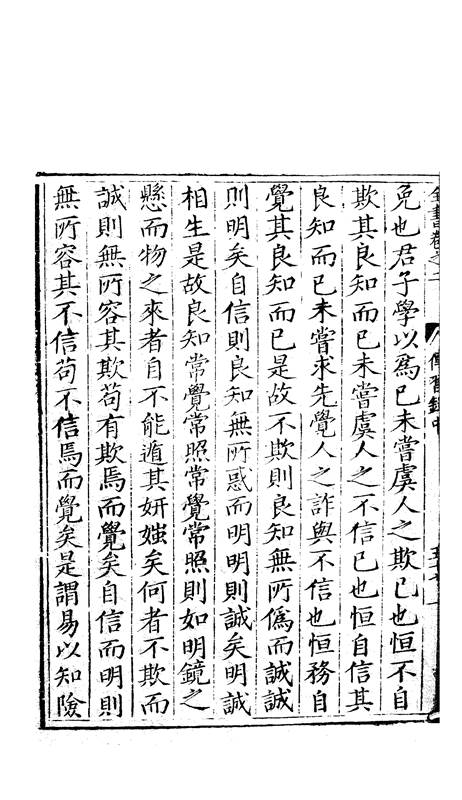 全書卷之二 傳習錄中
免也君子學以爲已未嘗虞人之欺已也恒不自
欺其良知而已未嘗虞人之不信已也恒自信其
良知而已未嘗求先覺人之詐與不信也恒務自
覺其良知而已是故不欺則良知無所僞而誠誠
則明矣自信則良知無所惑而明明則誠矣明誠
相生是故良知常覺常照常覺常照則如明鏡之
懸而物之來者自不能遁其妍媸矣何者不欺而
誠則無所容其欺苟有欺焉而覺矣自信而明則
無所容其不信苟不信焉而覺矣是謂易以知險